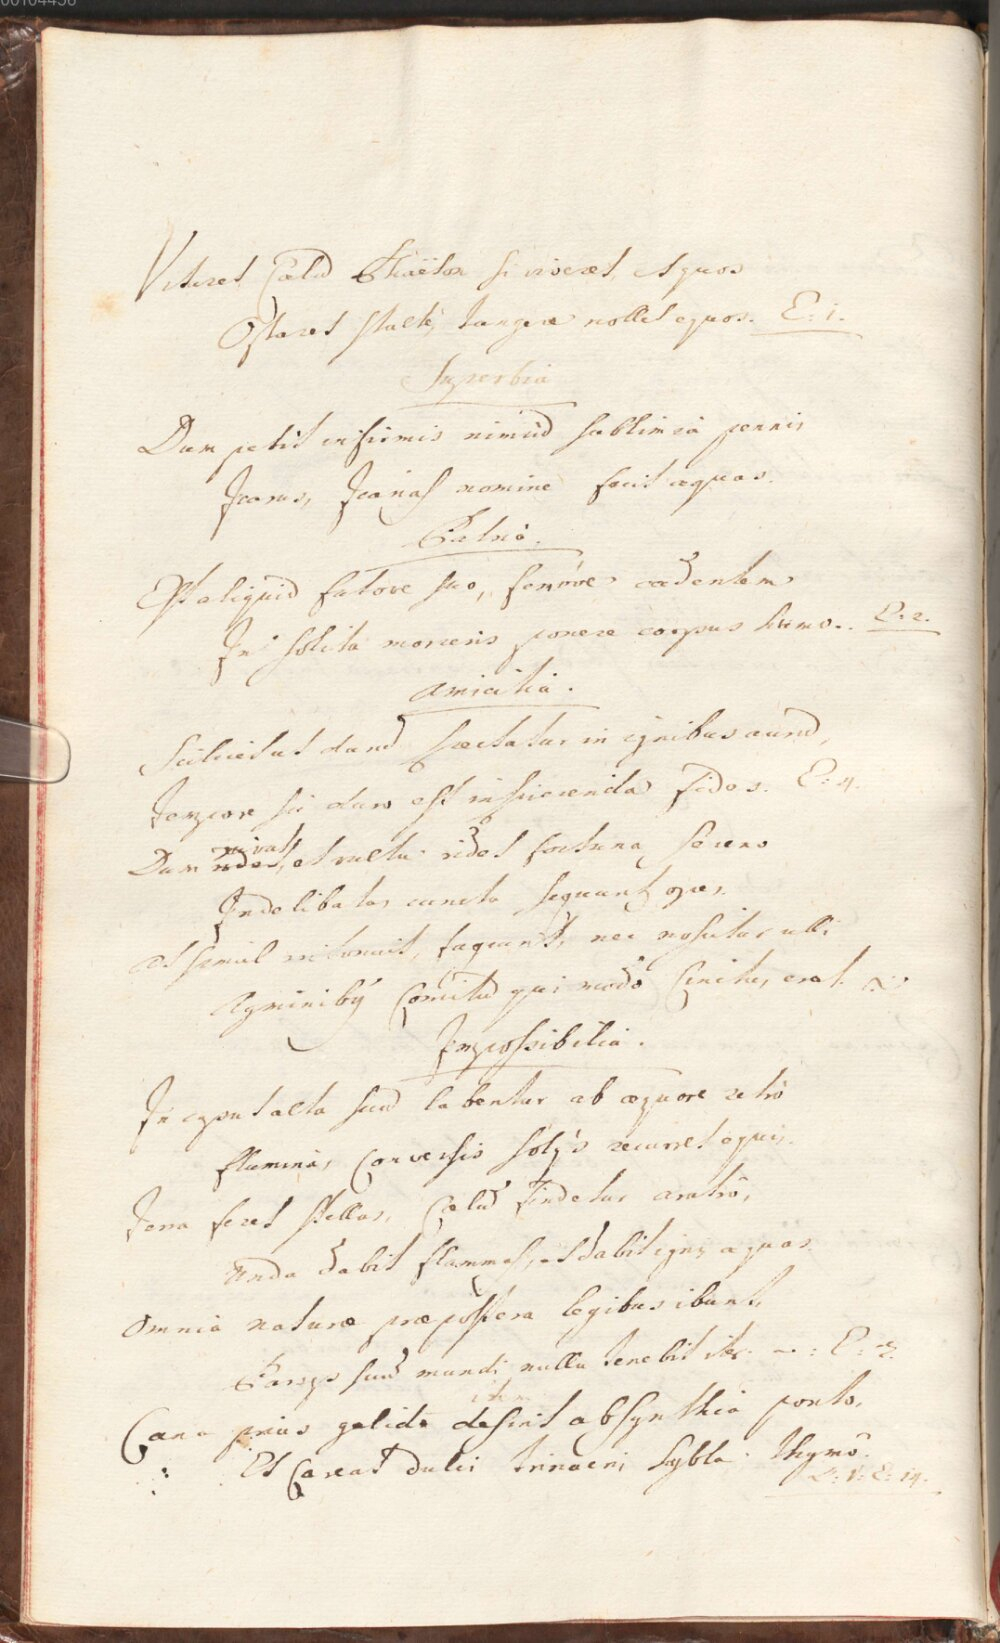 00104436
Vitaret Cælū Phaëton si viveret, et quos
Optaret stultè, tangere nollet equos. E: 1.
Superbia
Dum petit infirmis nimiū sublimia pennis
Icarus, Icarias nomine fecit aquas.
Patriâ.
Est aliquid fatove suo, ferrove cadentem
In solita moriens ponere corpus humo. E: 2.
Amicitia.
Scilicet ut fulvū spectatur in ignibus aurū,
Tempore sic duro est inspicienda fides. E: 4.
Dum juvat, et vultu ridet fortuna sereno
Indelibatas cuncta sequunt opes.
At simul intonuit, fugiunt, nec noscitur ulli
Agminibȝ Comitū qui modò Cinctus erat.
Impossibilia.
In caput alta suū labentur ab æquore retrò
flumina, Conversis solqȝ recurret equis.
Terra feret stellas, Cælū findetur aratrô,
Unda dabit flammas, et dabit ignis aquas
Omnia naturæ præpostera legibus ibunt,
Parsqȝ suū mundi nulla tenebit iter. E: 7.
item
Cana prius gelido desint absynthia ponto,
Et Careat dulci Trinacris hybla thymô.
L: 1: E: 14.